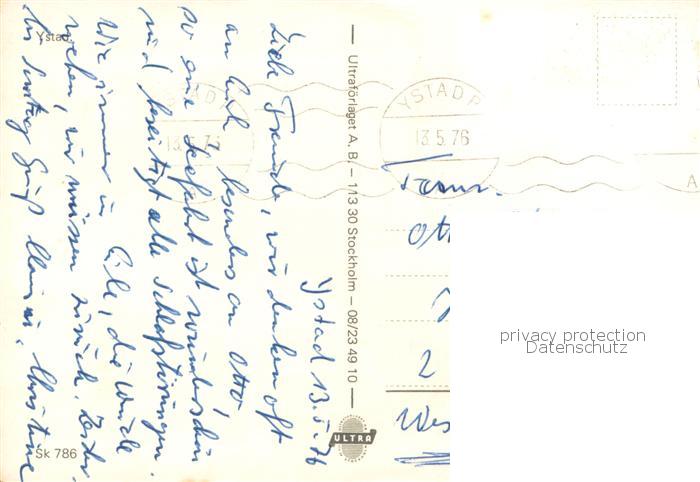 Ystad
Ystad 13.5.76
Liebe Freunde, wir denken oft
an Euch besonders an Otto,
so eine Seefahrt ist wunderschön
und beseitigt alle Schlafstörungen.
Wie immer in Eile, die Winde
wehen, wir müssen zurück.
bis Sonntag Gruß Christine
Sk 786
Ultraförlaget A. B. – 113 30 Stockholm – 08/23 49 10
ULTRA
YSTAD P
13.5.76
YSTAD P
13.5.76
A
Fam.
Ott
2
Wes
privacy protection
Datenschutz